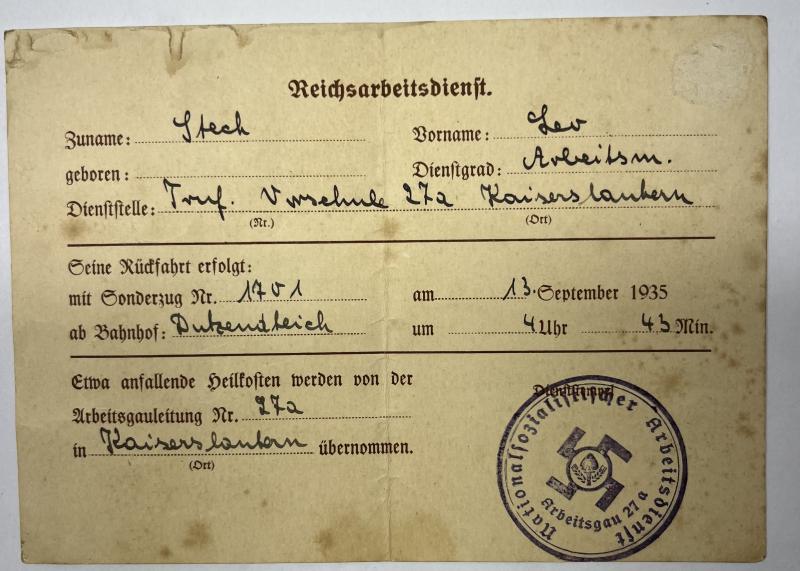 Reichsarbeitsdienst.
Zuname: Stech Vorname: Leo
geboren: Dienstgrad: Arbeitsm.
Dienststelle: Truf. Vorschule 27a Kaiserslautern
(Nr.) (Ort)
Seine Rückfahrt erfolgt:
mit Sonderzug Nr. 1701 am 13. September 1935
ab Bahnhof: Dutzendteich um 4 Uhr 43 Min.
Etwa anfallende Heilkosten werden von der
Arbeitsgauleitung Nr. 27a
in Kaiserslautern übernommen.
(Ort)
Dienststempel
Nationalsozialistischer Arbeitsdienst
Arbeitsgau 27a